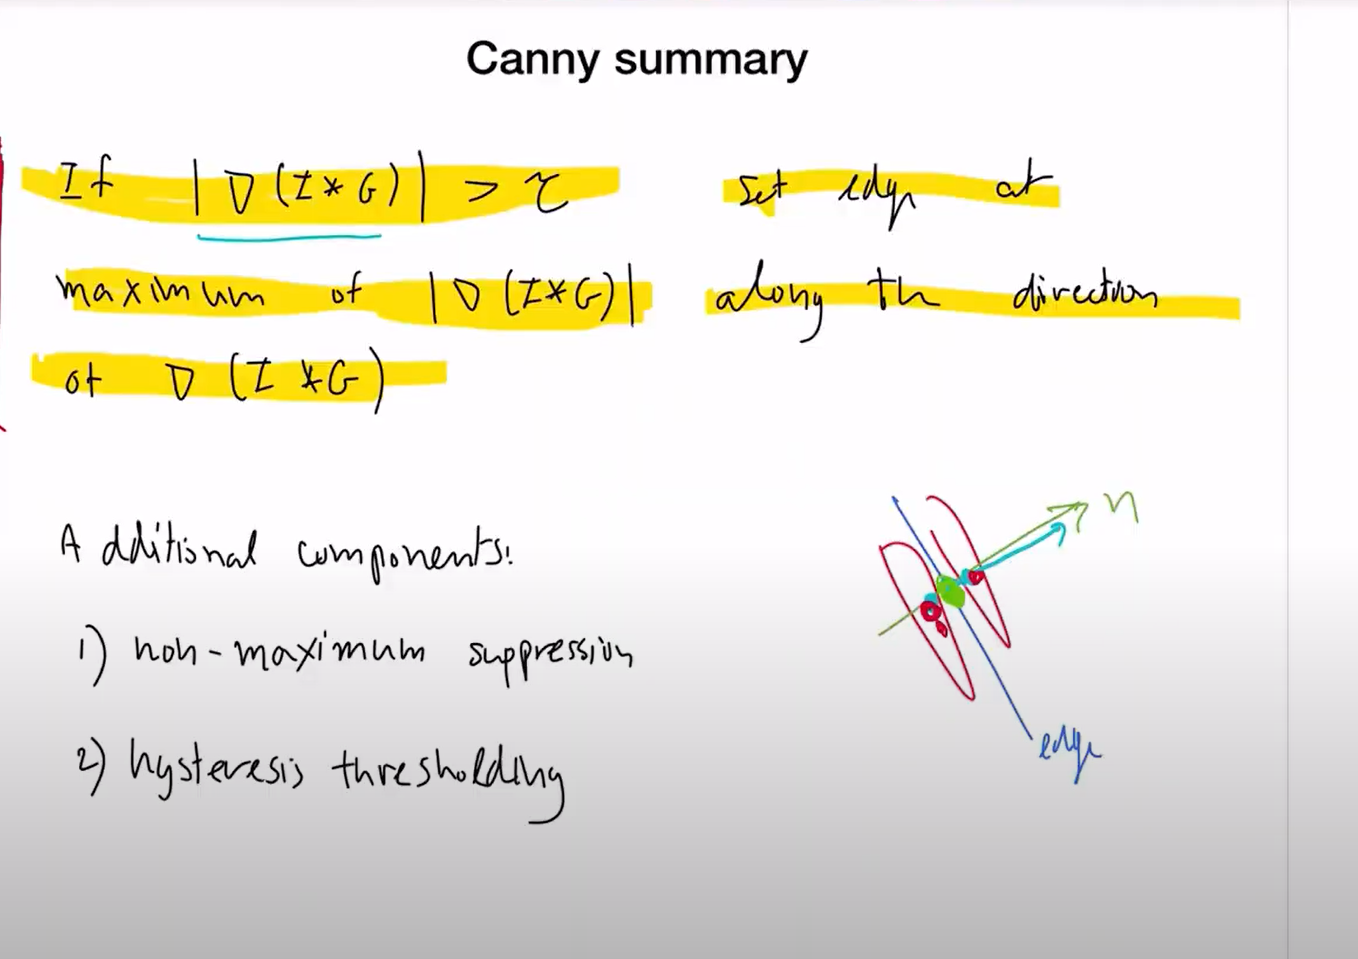 Canny summary
If |∇(I*G)| > τ set edge at
maximum of |∇(I*G)| along the direction
of ∇(I*G)
Additional components:
1) non-maximum suppression
2) hysteresis thresholding
n
edge